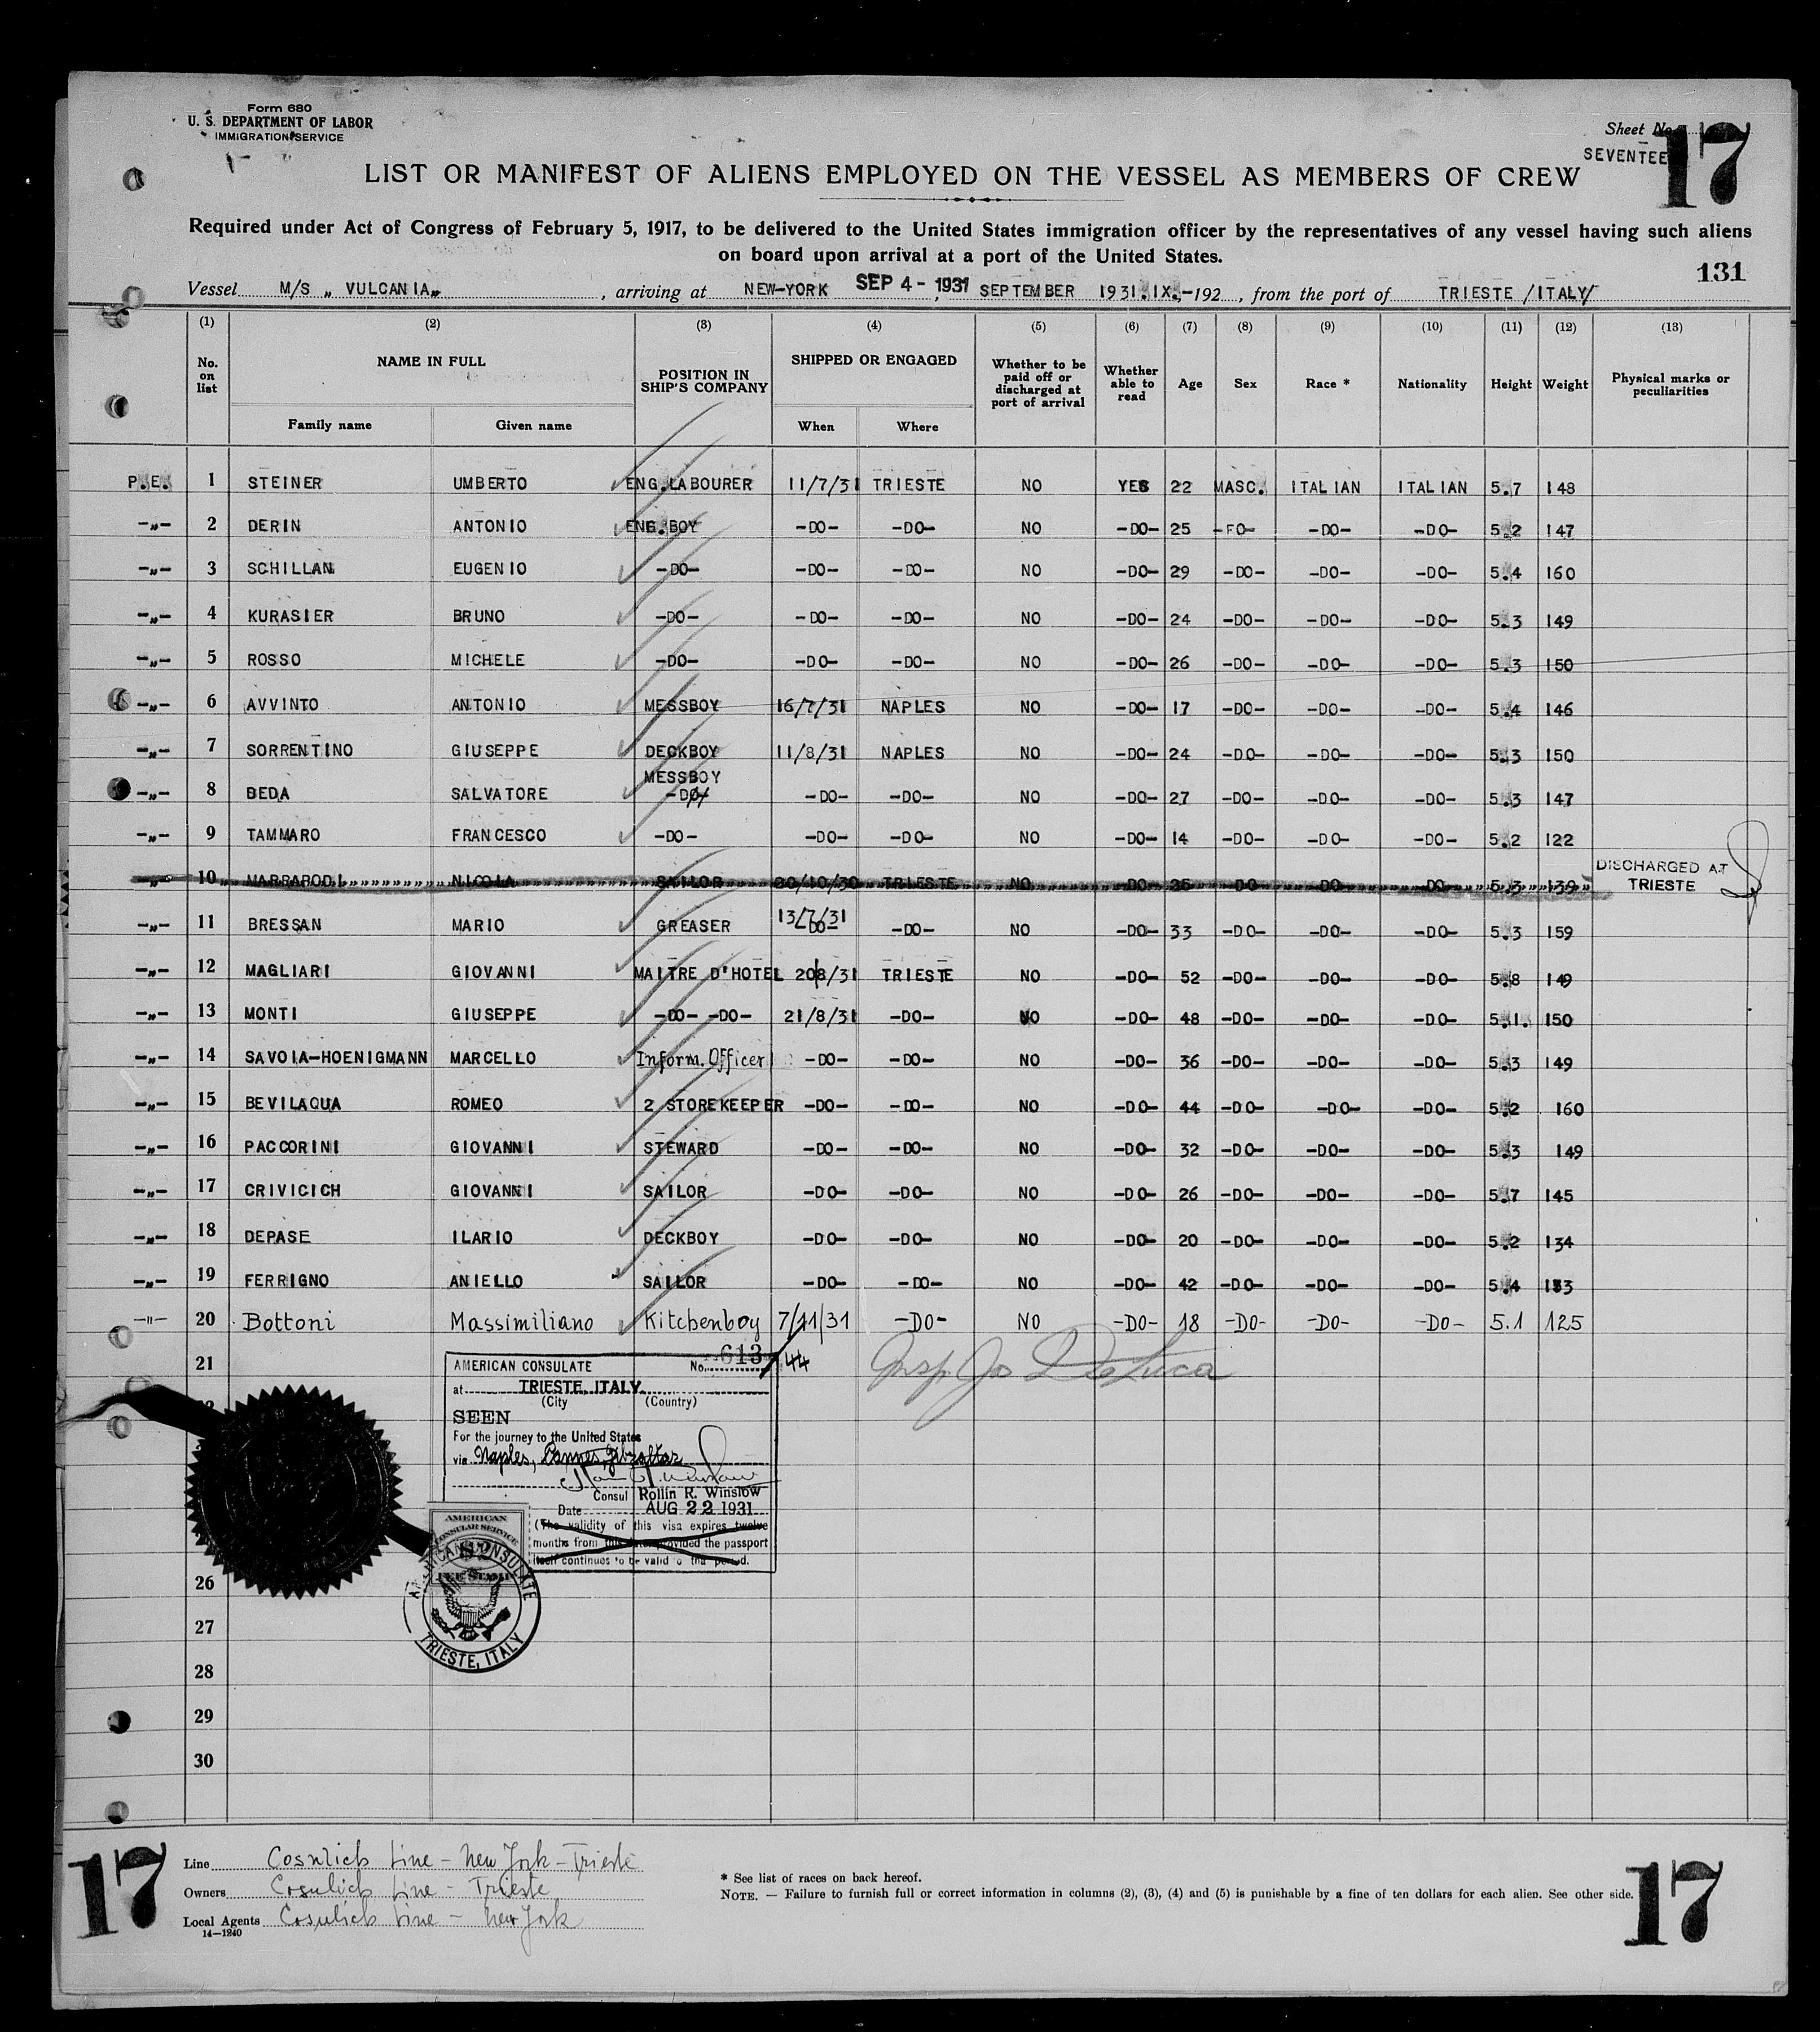 Form 680
U. S. DEPARTMENT OF LABOR
IMMIGRATION SERVICE
Sheet No.
SEVENTEE
17
LIST OR MANIFEST OF ALIENS EMPLOYED ON THE VESSEL AS MEMBERS OF CREW
Required under Act of Congress of February 5, 1917, to be delivered to the United States immigration officer by the representatives of any vessel having such aliens
on board upon arrival at a port of the United States.
131
Vessel M/S „ VULCANIA„ , arriving at NEW-YORK SEP 4 - 1931 , SEPTEMBER 1931.IX.-192 , from the port of TRIESTE /ITALY/
(1) (2) (3) (4) (5) (6) (7) (8) (9) (10) (11) (12) (13)
No. on list NAME IN FULL Family name Given name POSITION IN SHIP'S COMPANY SHIPPED OR ENGAGED When Where Whether to be paid off or discharged at port of arrival Whether able to read Age Sex Race * Nationality Height Weight Physical marks or peculiarities
P.E. 1 STEINER UMBERTO ENG.LABOURER 11/7/31 TRIESTE NO YES 22 MASC. ITALIAN ITALIAN 5.7 148
-„- 2 DERIN ANTONIO ENG.BOY -DO- -DO- NO -DO- 25 -FO- -DO- -DO- 5.2 147
-„- 3 SCHILLAN EUGENIO -DO- -DO- -DO- NO -DO- 29 -DO- -DO- -DO- 5.4 160
-„- 4 KURASIER BRUNO -DO- -DO- -DO- NO -DO- 24 -DO- -DO- -DO- 5.3 149
-„- 5 ROSSO MICHELE -DO- -DO- -DO- NO -DO- 26 -DO- -DO- -DO- 5.3 150
-„- 6 AVVINTO ANTONIO MESSBOY 16/7/31 NAPLES NO -DO- 17 -DO- -DO- -DO- 5.4 146
-„- 7 SORRENTINO GIUSEPPE DECKBOY 11/8/31 NAPLES NO -DO- 24 -DO- -DO- -DO- 5.3 150
MESSBOY
-„- 8 BEDA SALVATORE -DO- -DO- -DO- NO -DO- 27 -DO- -DO- -DO- 5.3 147
-„- 9 TAMMARO FRANCESCO -DO- -DO- -DO- NO -DO- 14 -DO- -DO- -DO- 5.2 122
-„- 10 MARRAPODI NICOLA SAILOR 20/10/30 TRIESTE NO -DO- 26 DO DO DO 5.3 139 DISCHARGED AT TRIESTE
13/7/31
-„- 11 BRESSAN MARIO GREASER -DO- -DO- NO -DO- 33 -DO- -DO- -DO- 5.3 159
-„- 12 MAGLIARI GIOVANNI MAITRE D'HOTEL 20/8/31 TRIESTE NO -DO- 52 -DO- -DO- -DO- 5.8 149
-„- 13 MONTI GIUSEPPE -DO- -DO- 21/8/31 -DO- NO -DO- 48 -DO- -DO- -DO- 5.1. 150
-„- 14 SAVOIA-HOENIGMANN MARCELLO Inform. Officer -DO- -DO- NO -DO- 36 -DO- -DO- -DO- 5.3 149
-„- 15 BEVILAQUA ROMEO 2 STOREKEEPER -DO- -DO- NO -DO- 44 -DO- -DO- -DO- 5.2 160
-„- 16 PACCORINI GIOVANNI STEWARD -DO- -DO- NO -DO- 32 -DO- -DO- -DO- 5.3 149
-„- 17 CRIVICICH GIOVANNI SAILOR -DO- -DO- NO -DO- 26 -DO- -DO- -DO- 5.7 145
-„- 18 DEPASE ILARIO DECKBOY -DO- -DO- NO -DO- 20 -DO- -DO- -DO- 5.2 134
-„- 19 FERRIGNO ANIELLO SAILOR -DO- -DO- NO -DO- 42 -DO- -DO- -DO- 5.4 133
-"- 20 Bottoni Massimiliano Kitchenboy 7/11/31 -DO- NO -DO- 18 -DO- -DO- -DO- 5.1 125
21
AMERICAN CONSULATE No. 613 44
Insp. Jo DeLuca
at TRIESTE, ITALY.
(City (Country)
SEEN
For the journey to the United States
via Naples, Cannes, Gibraltar
Consul Rollin R. Winslow
Date AUG 22 1931
(The validity of this visa expires twelve
months from this date, provided the passport
itself continues to be valid for that period.
AMERICAN
CONSULAR SERVICE
$2
FEE STAMP
AMERICAN CONSULATE
TRIESTE, ITALY
26
27
28
29
30
17
Line Cosulich Line - New York - Trieste
Owners Cosulich Line - Trieste
Local Agents Cosulich Line - New York
14-1240
* See list of races on back hereof.
NOTE. — Failure to furnish full or correct information in columns (2), (3), (4) and (5) is punishable by a fine of ten dollars for each alien. See other side.
17